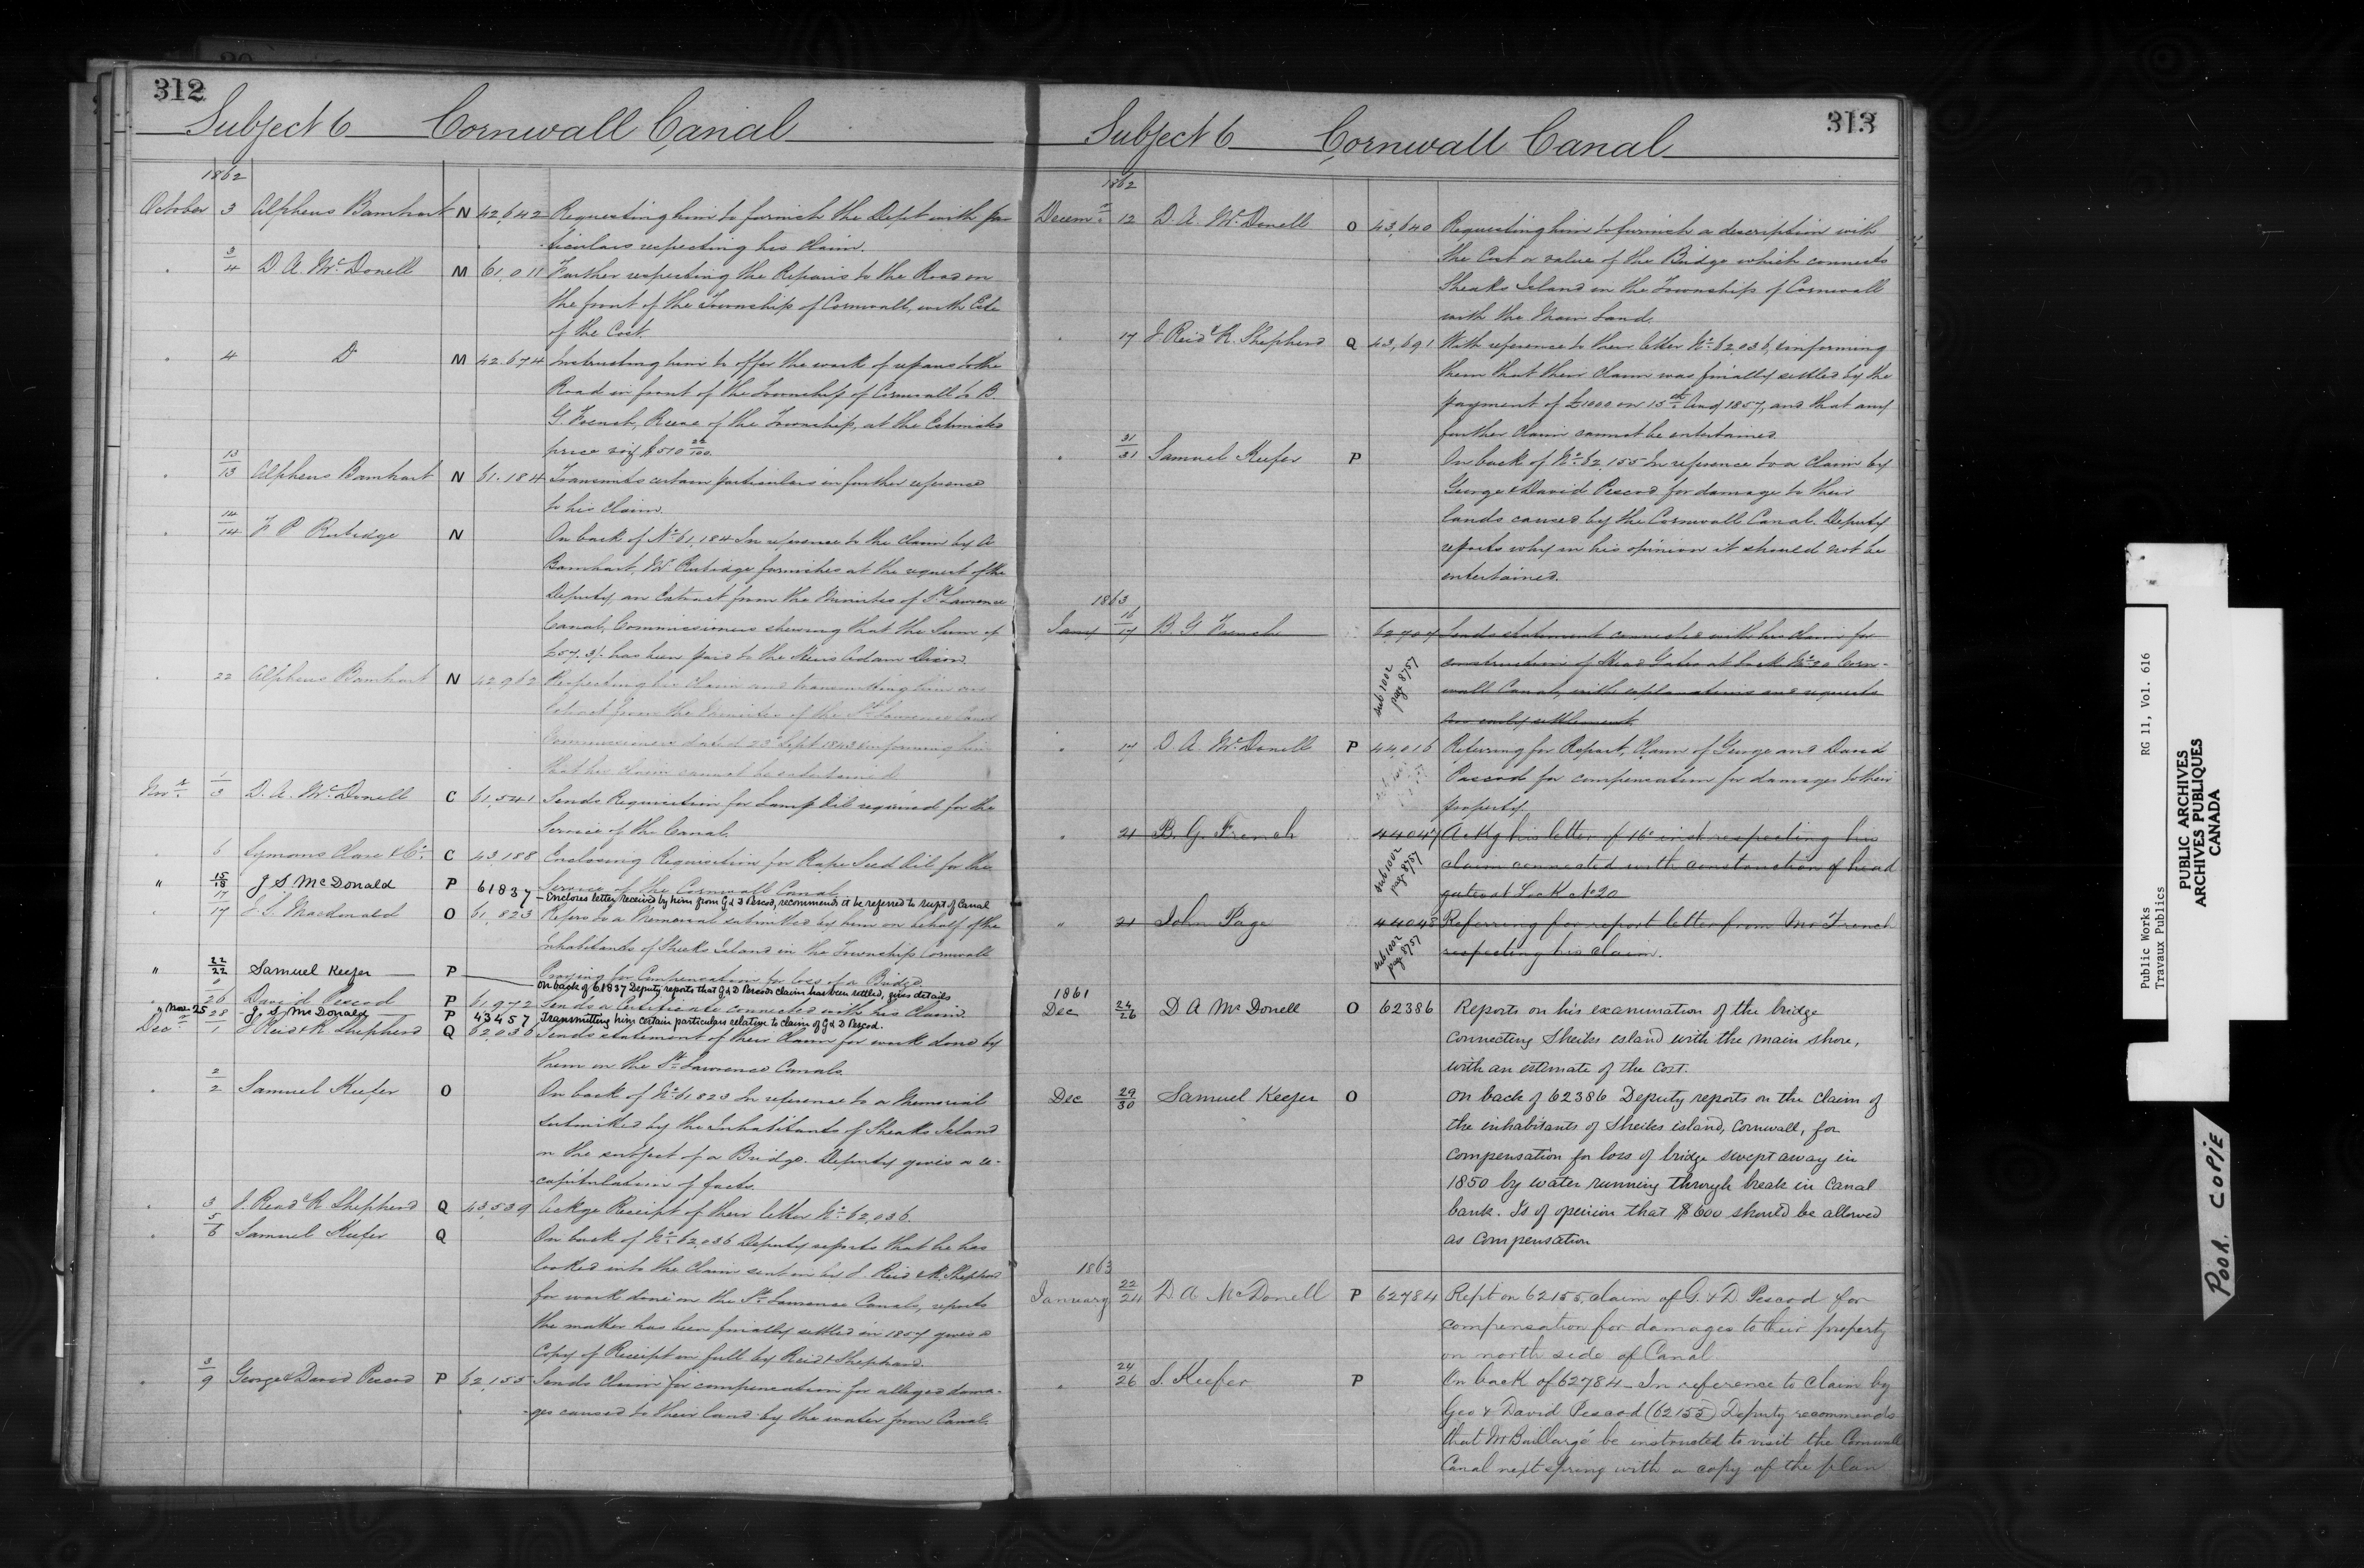 312
Subject 6 Cornwall Canal
1862
October 3 Alpheus Barnhart N 42,642 Requesting him to furnish the Dept with par
ticulars respecting his claim.
" 3/4 D. A. McDonell M 61,011 Further respecting the Repairs to the Road on
the front of the Township of Cornwall, with Este
of the Cost.
" 4 Do M 42.674 Instructing him to offer the work of repairs to the
Road in front of the Township of Cornwall to B.
G. French, Reeve of the Township, at the Estimated
price viz $510 22/100.
" 13/13 Alpheus Barnhart N 61.184 Transmits certain particulars in further reference
to his claim.
" 14/14 F P Rubidge N On back of No 61,184 In reference to the claim by A
Barnhart, Mr Rubidge furnishes at the request of the
Deputy, an Extract from the Minutes of St Lawrence
Canal, Commissioners shewing that the Sum of
£57.3/. has been paid to the Heirs Adam Dixon.
" 22 Alpheus Barnhart N 42,962 Respecting his claim and transmitting him an
Extract from the Minutes of the St Lawrence Canal
Commissioners dated 23d Sept 1843 & informing him
that his claim cannot be entertained
Novr 1/3 D. A. McDonell C 61,541 Sends Requisition for Lamp Oil required for the
Service of the Canal.
" 6 Symons Clare & Co. C 43,188 Enclosing Requisition for Rape Seed Oil for the
Service of the Cornwall Canal
" 15/18 J S. McDonald P 61837 — Encloses letter received by him from G & D Pescod, recommends it be referred to supt of Canal
" 17/17 J. S. Macdonald O 61,823 Refers to a Memorial submitted by him on behalf of the
Inhabitants of Sheeks Island in the Township Cornwall
Praying for Compensation for loss of a Bridge.
" 22/22 Samuel Keefer P — on back of 61837 Deputy reports that G & D Pescods claim has been settled, gives details
" 26 David Pescod P 61,972 Sends a Certificate connected with his Claim.
" Nov 25 28 J. S McDonald P 43457 Transmitting him certain particulars relative to claim of G & D Pescod.
Decr 1 J Reid & R Shepherd Q 62,036 Sends statement of their Claim for work done by
them on the St Lawrence Canals.
" 2/2 Samuel Keefer O On back of No 61823 In reference to a Memorial
submitted by the Inhabitants of Sheaks Island
on the subject of a Bridge. Deputy gives a re-
capitulation of facts.
" 3 J. Read & R Shepherd Q 43,539 Ackge Receipt of their letter No 62,036.
" 5/6 Samuel Keefer Q On back of No 62,036 Deputy reports that he has
looked into the Claim sent in by J. Reid & R. Shepherd
for work done on the St Lawrence Canals, reports
the matter has been finally settled in 1857 gives a
Copy of Receipt in full by Reid & Shephard.
" 3/9 George & David Pescod P 62,155 Sends Claim for compensation for alleged dama-
ges caused to their land by the water from Canal.
313
Subject 6 Cornwall Canal
1862
Decemr 12 D. A. McDonell O 43,640 Requesting him to furnish a description with
the Cost or value of the Bridge which connects
Sheaks Island in the Township of Cornwall
with the Main Land.
" 17 J Reid & R. Shepherd Q 43,691 With reference to their letter No 62,036, & informing
them that their claim was finally settled by the
payment of £1000 on 15th Augt 1857, and that any
further Claim cannot be entertained.
" 31/31 Samuel Keefer P On back of No 62,155 In reference to a Claim by
George & David Pescod for damage to their
lands caused by the Cornwall Canal. Deputy
reports why in his opinion it should not be
entertained.
1863
Jany 16/17 B. G French 62,707 Sends statement connected with his claim for
construction of Head Gates at Lock No 20 Corn-
wall Canal, with explanations and requests
an early settlement.
sub 1002
page 8757
" 17 D. A. McDonell P 44016 Referring for Report, Claim of George and David
Pescod for compensation for damages to their
property.
" 21 B. G. French 44047 Ackg his letter of 16th inst respecting his
claim connected with construction of head
gates at Lock No 20
sub 1002
page 8757
" 21 John Page 44048 Referring for report letter from Mr French
respecting his claim.
sub 1002
page 8757
1861
Dec 24/26 D A McDonell O 62386 Reports on his examination of the bridge
connecting Sheiks island with the main shore,
with an estimate of the cost.
Dec 29/30 Samuel Keefer O on back of 62386 Deputy reports on the claim of
the inhabitants of Sheiks island, Cornwall, for
compensation for loss of bridge swept away in
1850 by water running through break in Canal
bank. Is of opinion that $600 should be allowed
as compensation
1863
January 22/24 D A McDonell P 62784 Rept on 62155, claim of G. & D. Pescod for
compensation for damages to their property
on north side of Canal
" 24/26 S. Keefer P On back of 62784 — In reference to claim by
Geo & David Pescod (62155) Deputy recommends
that Mr Baillargé be instructed to visit the Cornwall
Canal next spring with a copy of the plan
Public Works RG 11, Vol. 616
Travaux Publics
PUBLIC ARCHIVES
ARCHIVES PUBLIQUES
CANADA
POOR COPIE